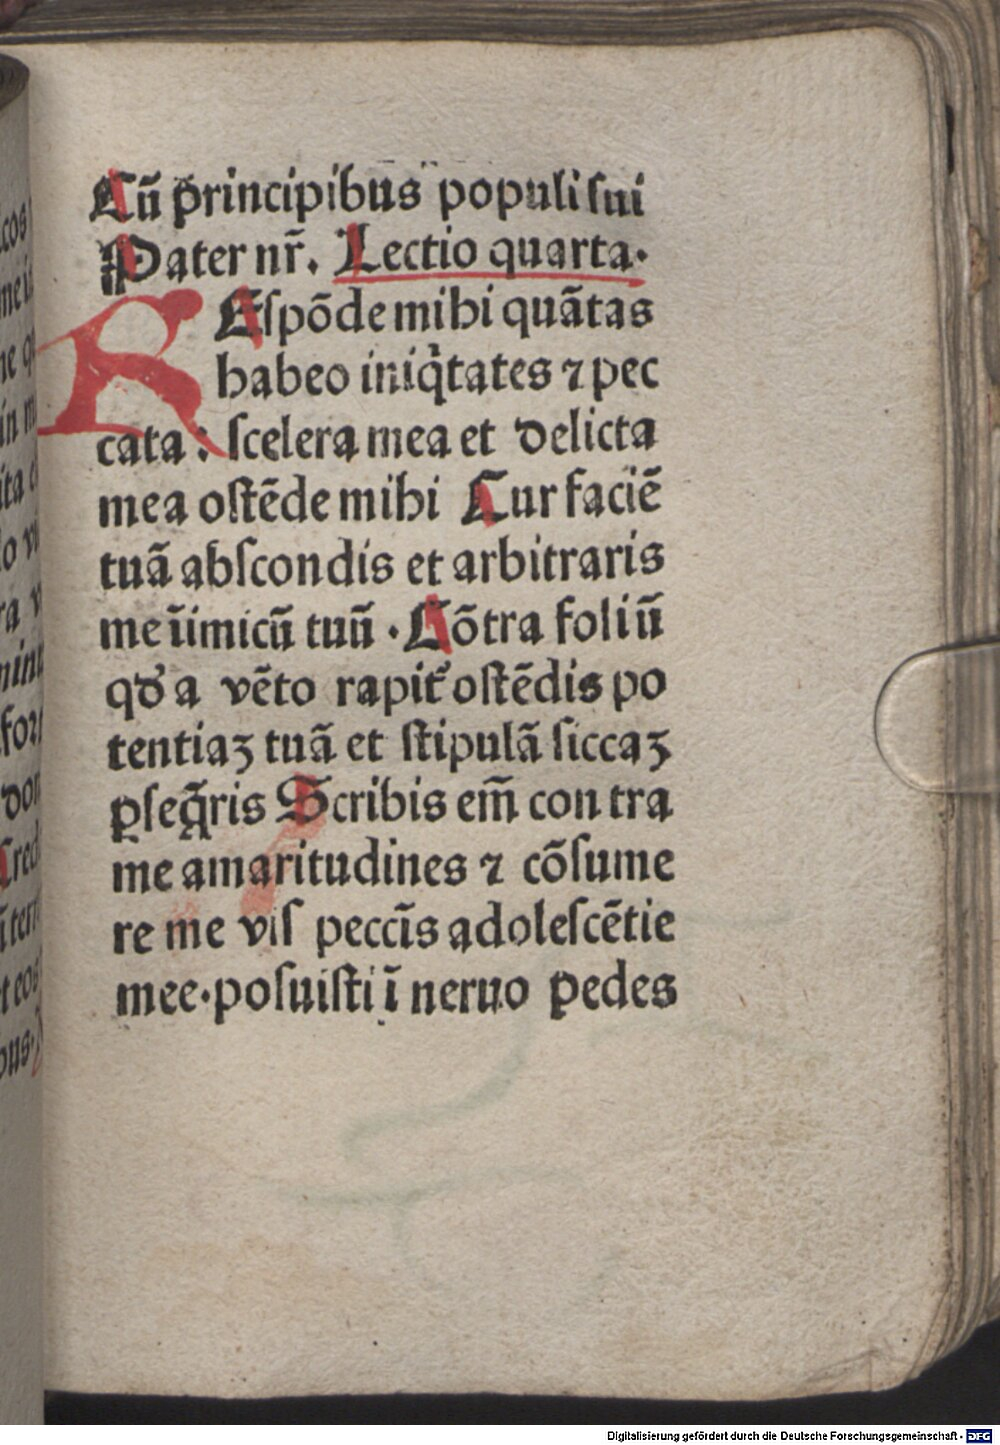 Cū principibus populi ſui
Pater nr̄. Lectio quarta.
REſpōde mihi quātas
habeo iniq̇tates ⁊ pec
cata: ſcelera mea et delicta
mea oſtēde mihi Cur faciē
tuā abſcondis et arbitraris
me īimicū tuū. Cōtra foliū
qd̄ a vēto rapit᷑ oſtēdis po
tentiaꝫ tuā et ſtipulā ſiccaꝫ
ꝑſeq̄ris Scribis em̄ contra
me amaritudines ⁊ cōſume
re me viſ peccīs adoleſcētie
mee. poſuiſti ī neruo pedes
Digitalisierung gefördert durch die Deutsche Forschungsgemeinschaft - DFG